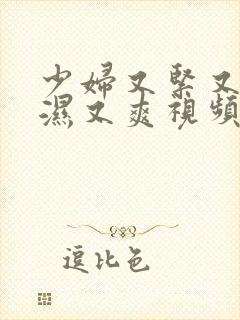 少婦又緊又
濕又爽視頻
逗比色